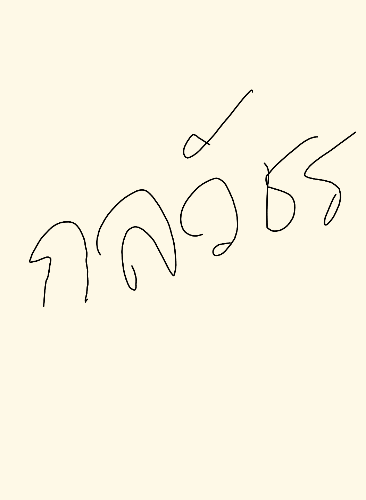 กลวัธร